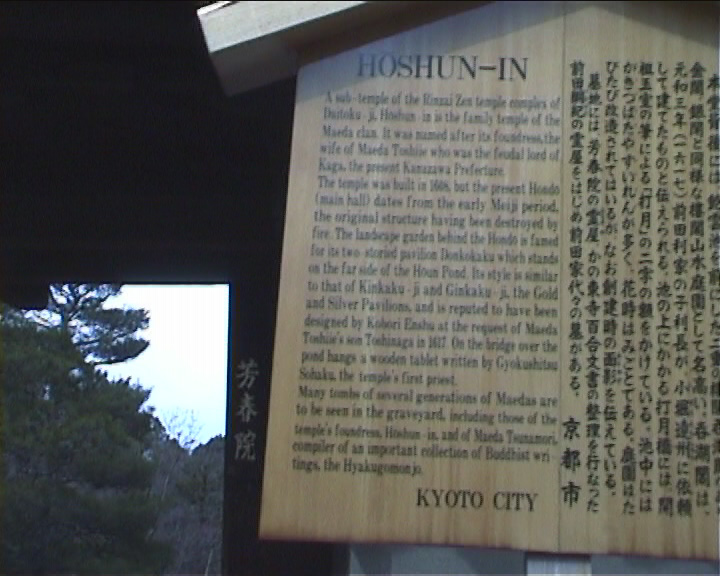 HOSHUN-IN
A sub-temple of the Rinzai Zen temple complex of
Daitoku-ji, Hoshun-in is the family temple of the
Maeda clan. It was named after its foundress, the
wife of Maeda Toshiie who was the feudal lord of
Kaga, the present Kanazawa Prefecture.
The temple was built in 1608, but the present Hondo
(main hall) dates from the early Meiji period,
the original structure having been destroyed by
fire. The landscape garden behind the Hondo is famed
for its two-storied pavilion Donkokaku which stands
on the far side of the Houn Pond. Its style is similar
to that of Kinkaku-ji and Ginkaku-ji, the Gold
and Silver Pavilions, and is reputed to have been
designed by Kobori Enshu at the request of Maeda
Toshiie's son Toshinaga in 1617. On the bridge over the
pond hangs a wooden tablet written by Gyokushitsu
Sohaku, the temple's first priest.
Many tombs of several generations of Maedas are
to be seen in the graveyard, including those of the
temple's foundress, Hoshun-in, and of Maeda Tsunamori,
compiler of an important collection of Buddhist wri-
tings, the Hyakugomonjo.
KYOTO CITY
金閣、銀閣と同様な楼閣山水庭園として名高い。呑湖閣は、
元和三年(一六一七)前田利家の子利長が、小堀遠州に依頼
して建てたものと伝えられる。池の上にかかる打月橋には、開
祖玉室の筆による「打月」の二字の額をかけている。池中には
かきつばたやすいれんが多く、花時はみごとである。庭園はた
びたび改造されてはいるが、なお創建時の面影を伝えている。
墓地には、芳春院の霊屋、かの東寺百合文書の整理を行なった
前田綱紀の霊屋をはじめ前田家代々の墓がある。
京都市
芳春院